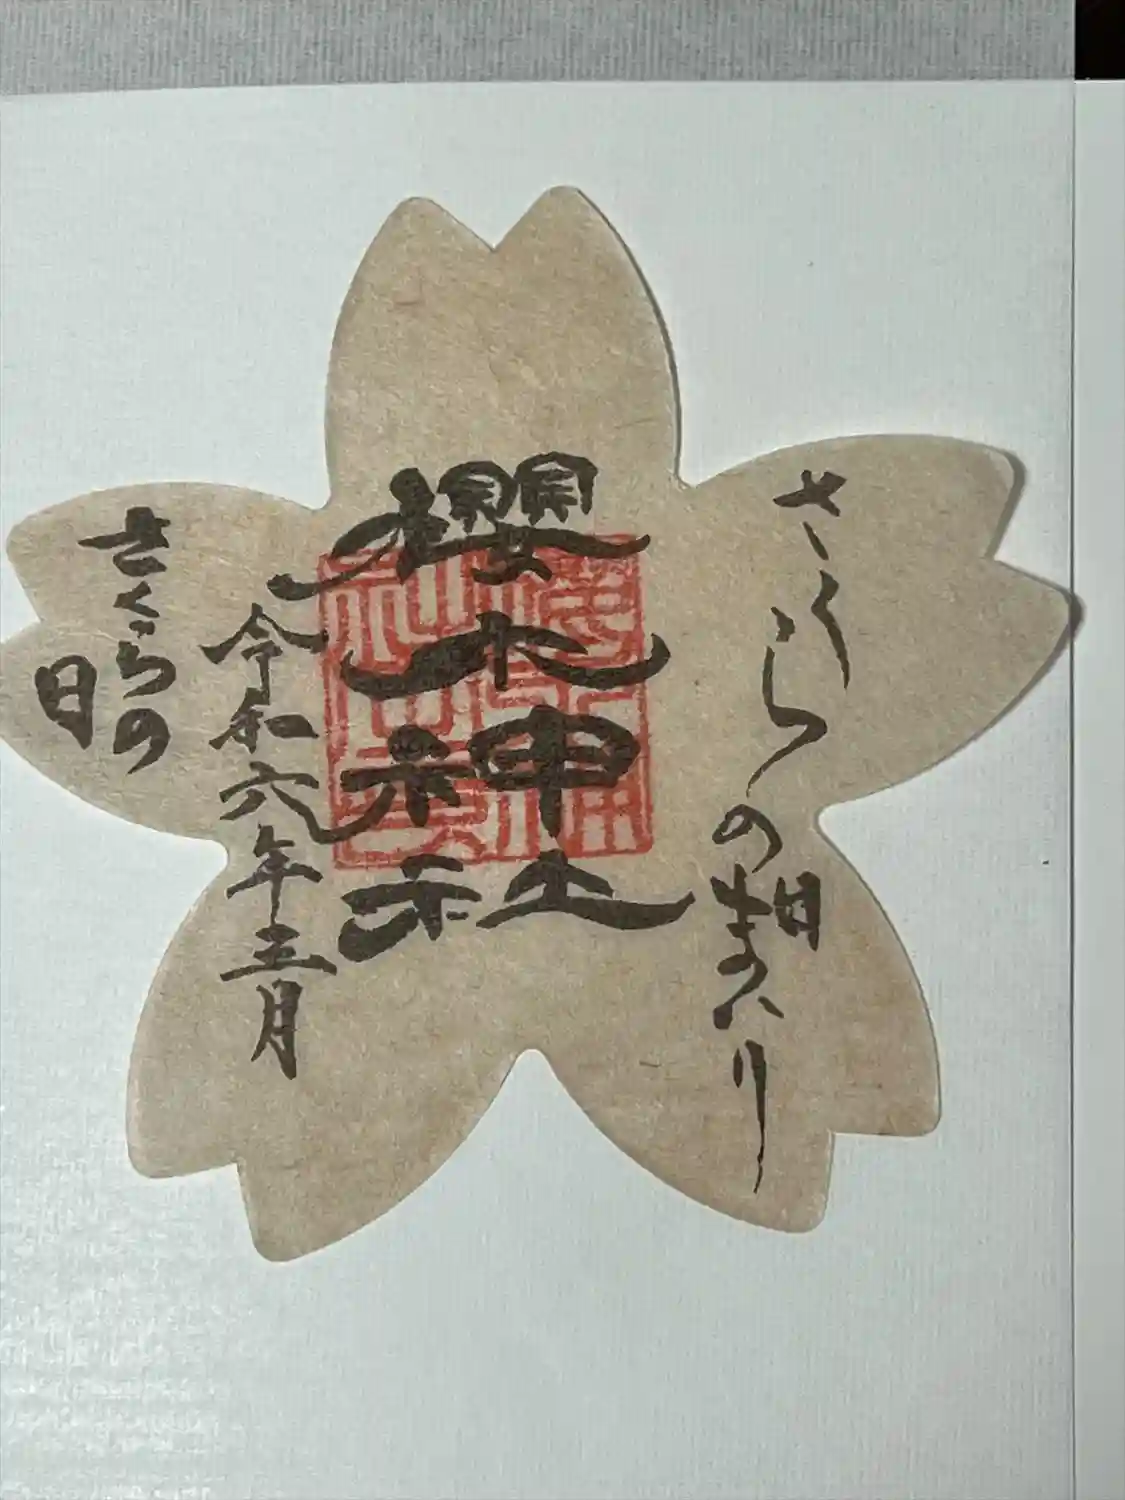 さくらの日まゐり
櫻木神社
令和六年三月
さくらの
日